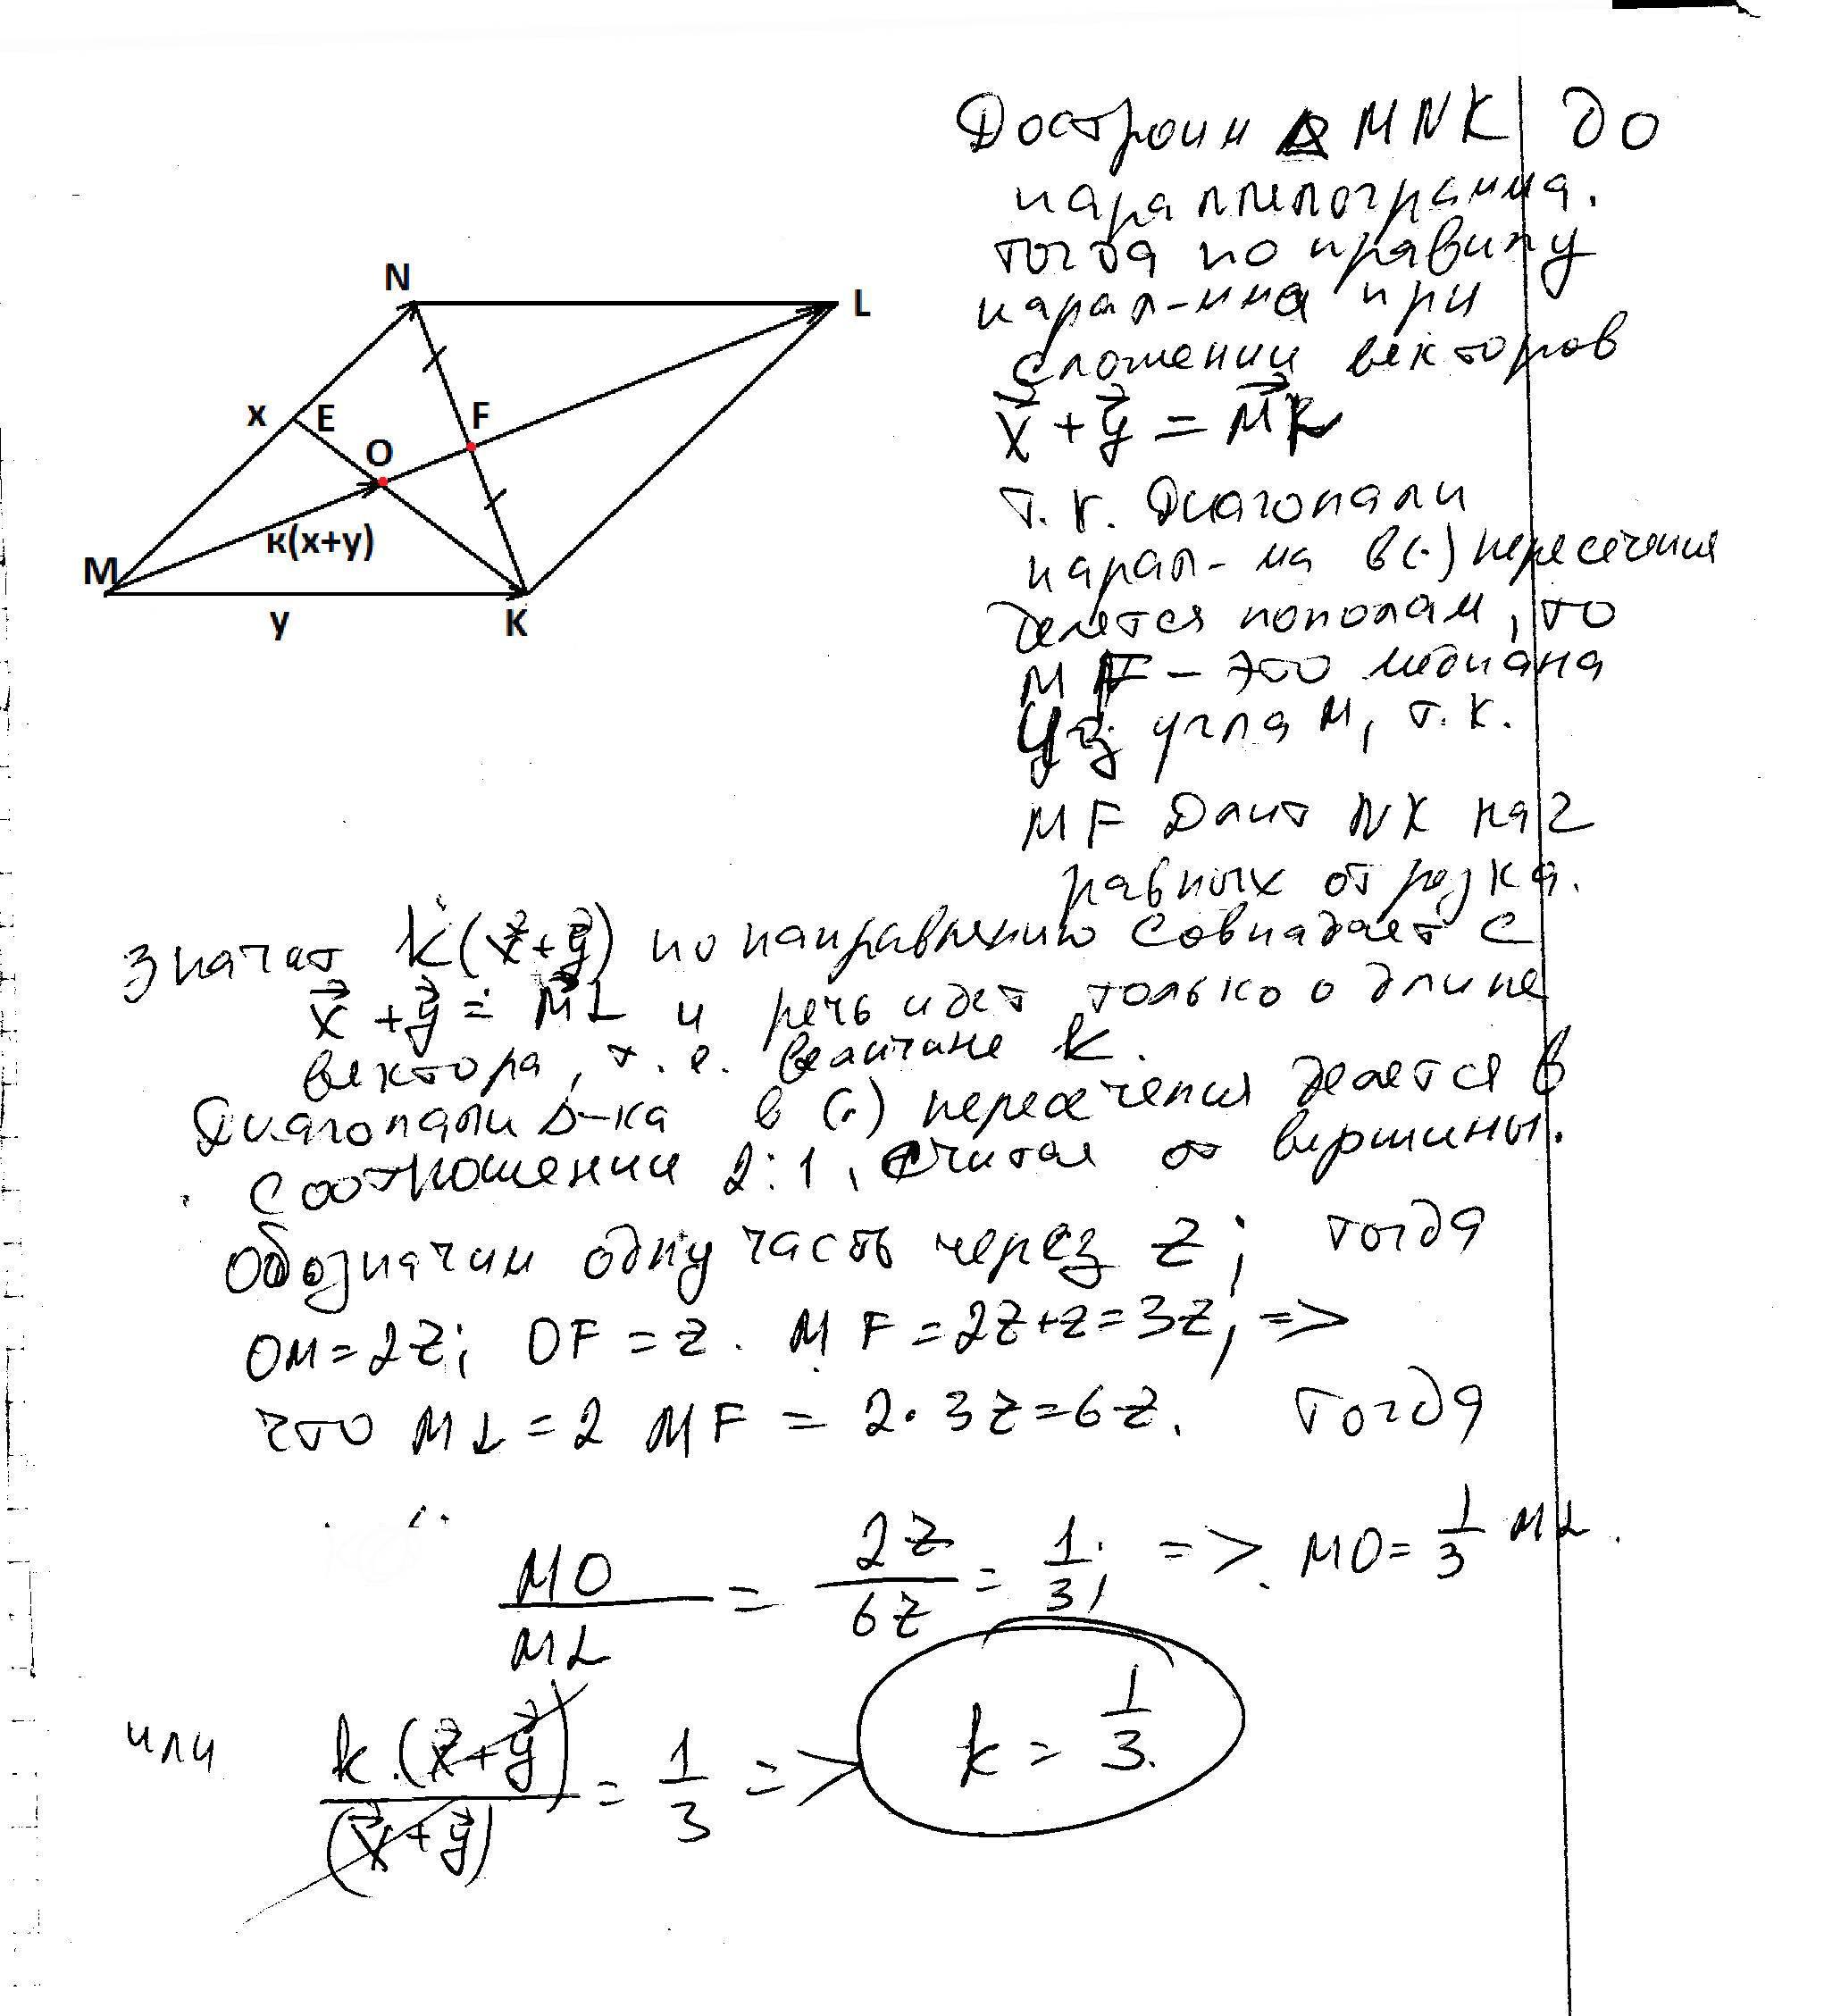 N
L
x
E
F
O
к(x+y)
M
y
K
Достроим △ MNK до
параллелограмма.
тогда по правилу
парал-мма при
сложении векторов
x⃗ + y⃗ = ML⃗
т.к. Диагонали
парал-ма в (·) пересечения
делется пополам, то
MF – это медиана
из угла M, т.к.
MF Делит NK на 2
равных отрезка.
значат k(x⃗+y⃗) по направлению совпадает с
x⃗ + y⃗ = ML⃗ и речь идет только о длине
вектора, т.е. величине k.
Диагонали Δ-ка в (·) пересечения делется в
соотношении 2:1, считая от вершины.
Обозначим одну часть через z; тогда
OM = 2z; OF = z. MF = 2z+z = 3z; =>
что ML = 2 MF = 2·3z = 6z. Тогда
MO/ML = 2z/6z = 1/3; => MO = 1/3 ML.
или k·(x⃗+y⃗)/(x⃗+y⃗) = 1/3 => k = 1/3.